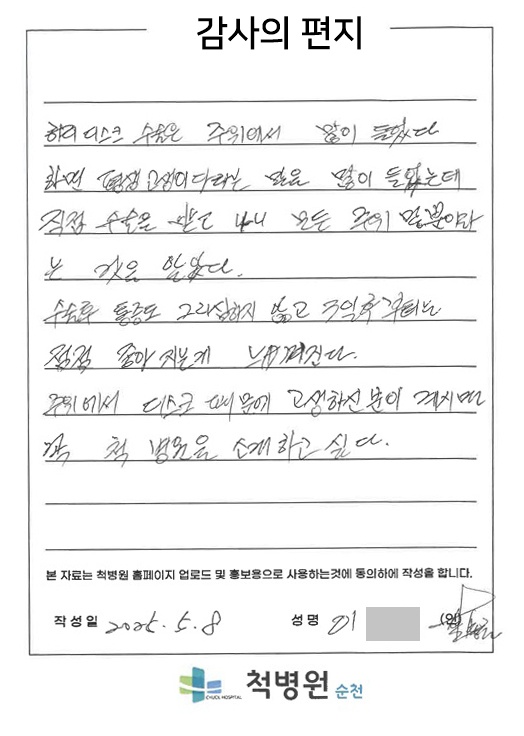 감사의 편지
허리 디스크 수술은 주위에서 많이 들었다
하면 평생 고생이다라는 말은 많이 들었는데
직접 수술은 받고 나니 모든 주위 말뿐이라
는 것을 알았다.
수술후 통증도 그리심하지 않고 3일후 부터는
점점 좋아 지는게 느껴진다.
주위에서 디스크 때문에 고생하신분이 계시면
꼭 척 병원을 소개하고 싶다.
본 자료는 척병원 홈페이지 업로드 및 홍보용으로 사용하는것에 동의하에 작성을 합니다.
작성일 2025. 5. 8 성명 이 (인)
CHUCK HOSPITAL 척병원 순천